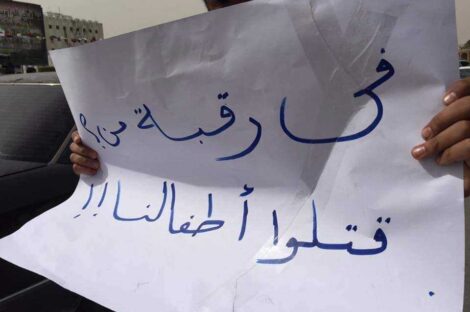 في رقبة من؟؟
قتلوا أطفالنا!!!